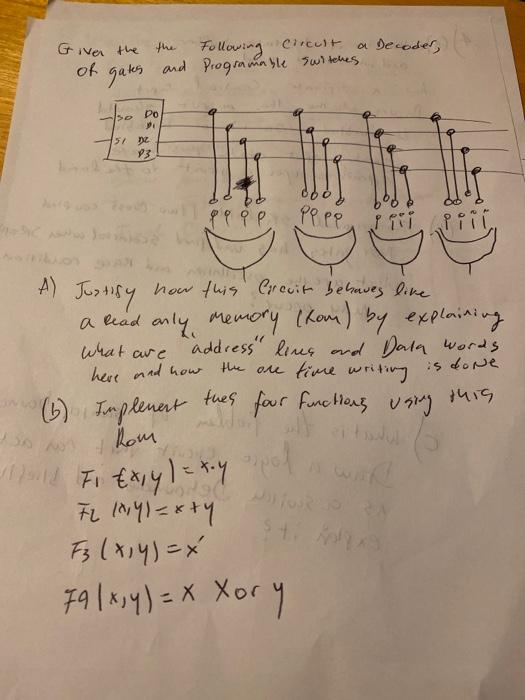 Given the the Following Circuit a Decoder,
of gates and Programable switches
S0 D0
D1
S1 D2
D3
A) Justify how this Circuit behaves like
a Read only memory (Rom) by explaining
what are "address" lines and Data words
here and how the one time writing is done
(b) Implement thes four functions using this
Rom
F1 (x,y) = x.y
F2 (x,y) = x+y
F3 (x,y) = x'
F4 (x,y) = x Xor y